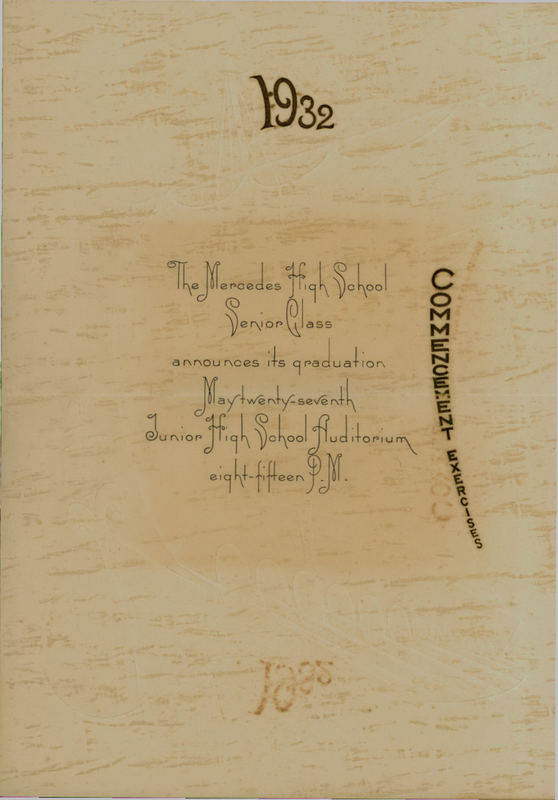 1932
The Mercedes High School
Senior Class
announces its graduation
May twenty-seventh
Junior High School Auditorium
eight-fifteen P.M.
COMMENCEMENT EXERCISES
1932